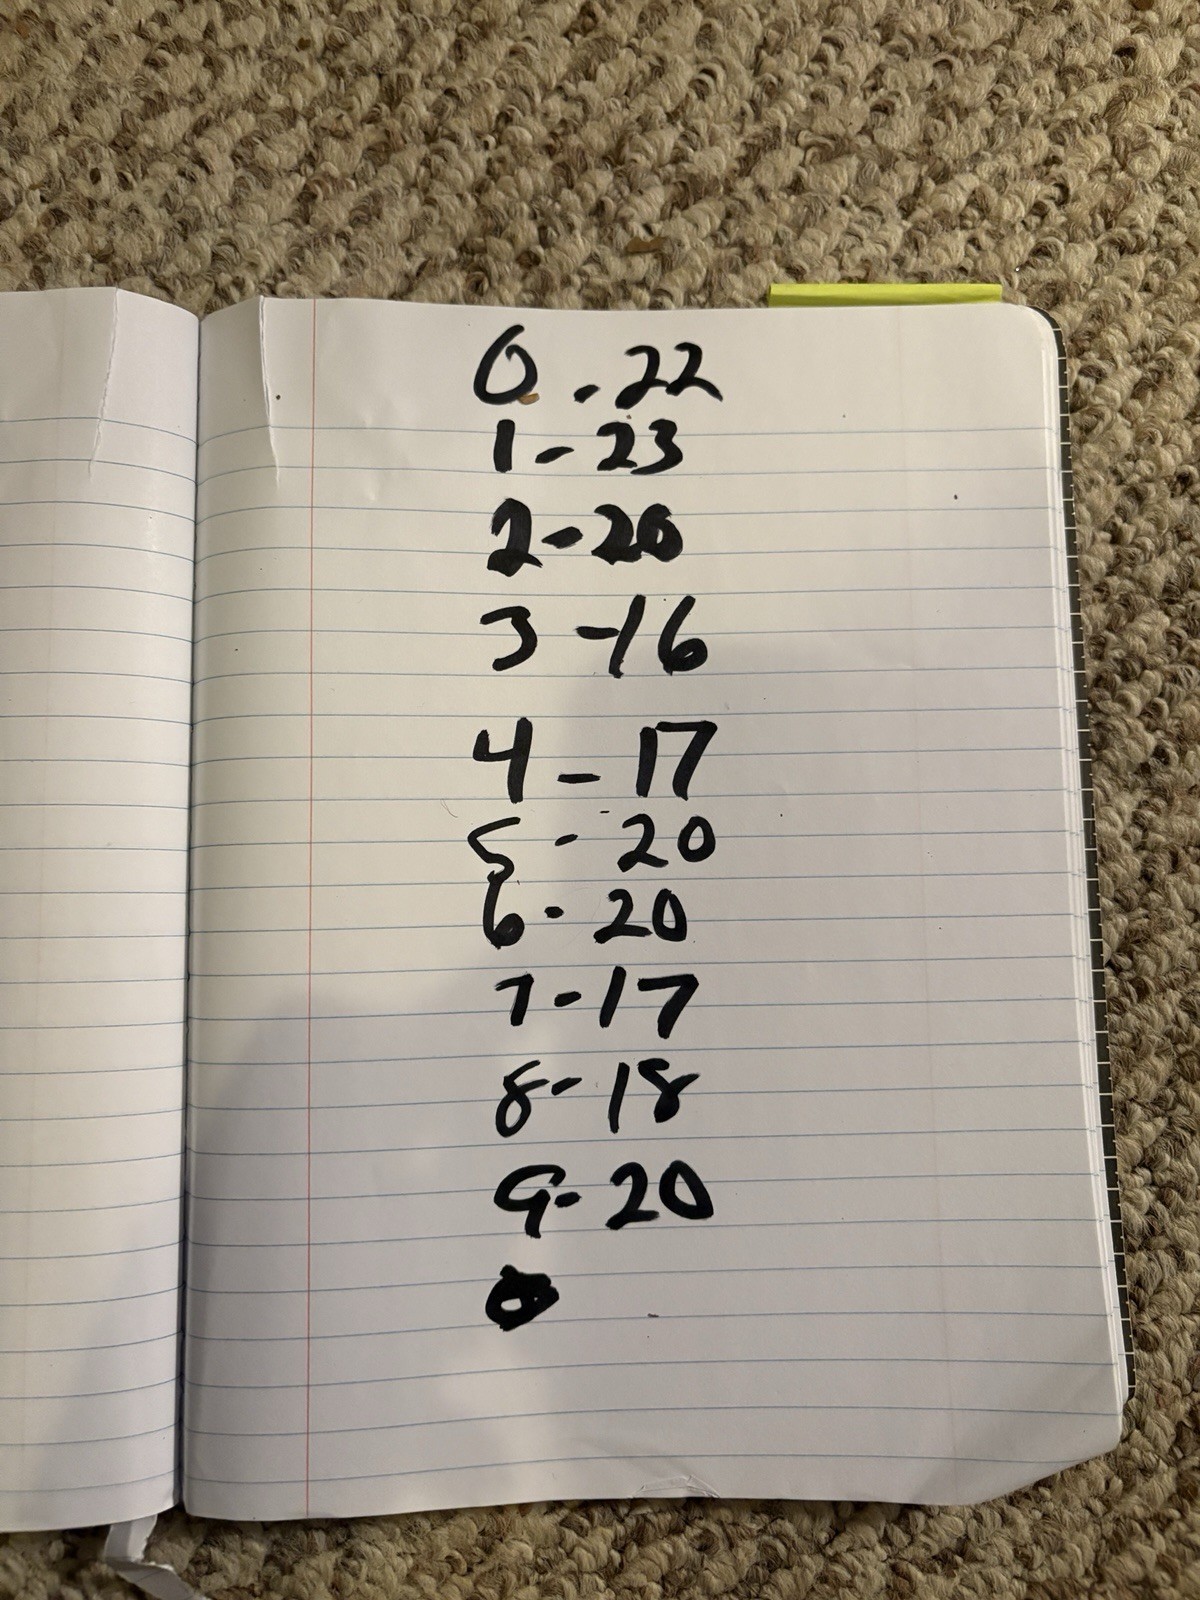 0 - 22
1 - 23
2 - 20
3 - 16
4 - 17
5 - 20
6 - 20
7 - 17
8 - 18
9 - 20